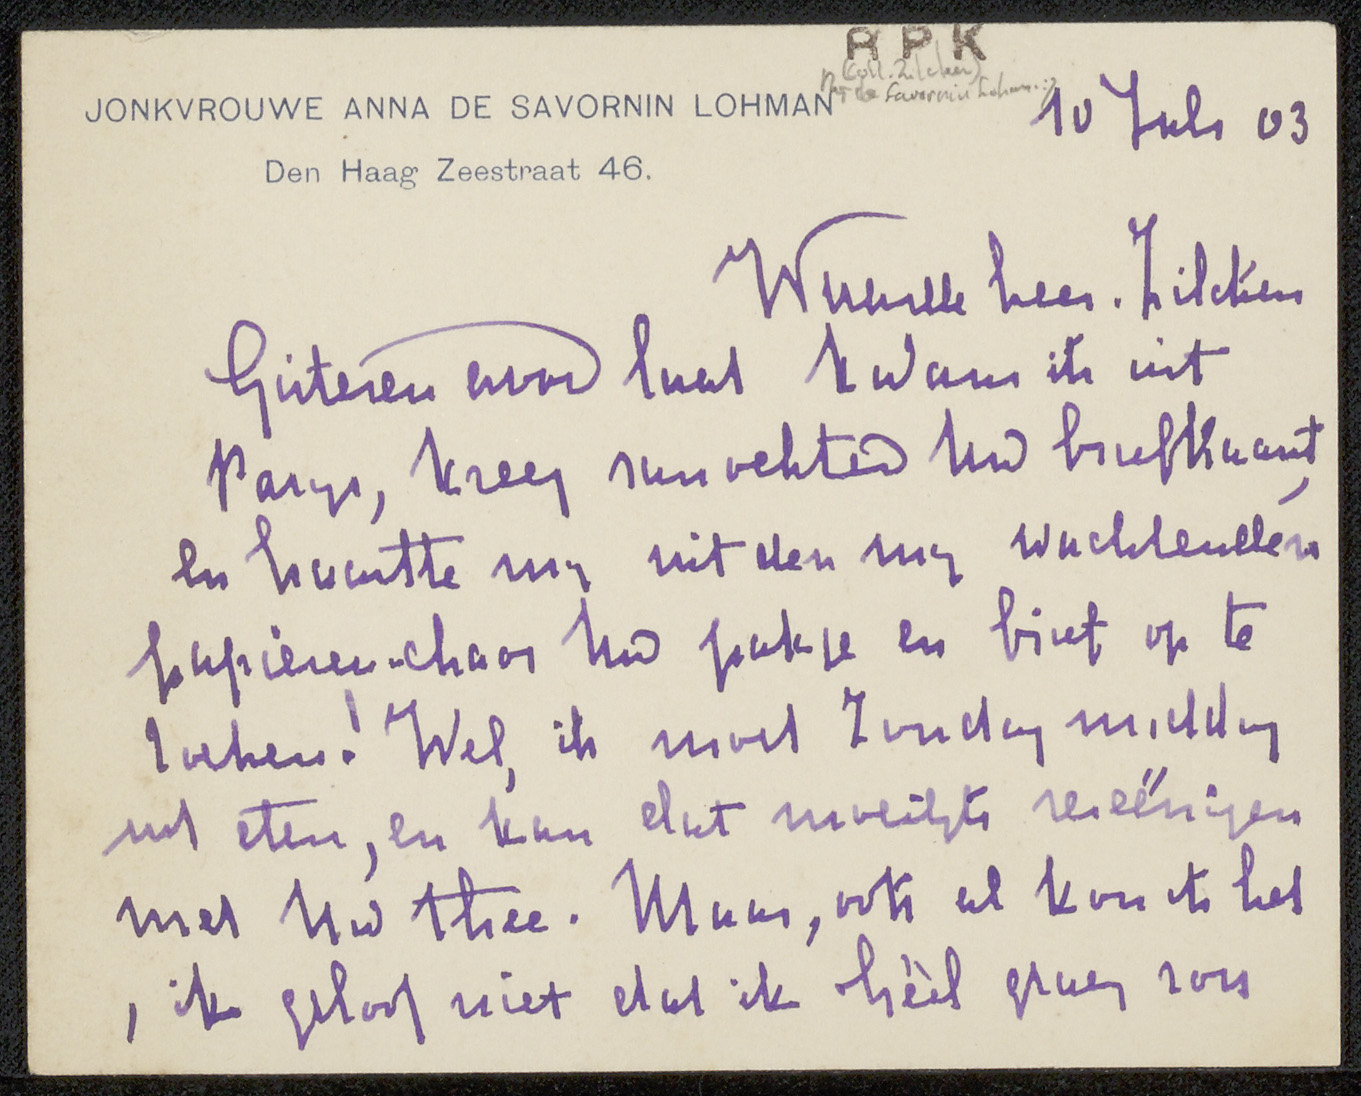 R P K
(coll. Zilcken)
JONKVROUWE ANNA DE SAVORNIN LOHMAN
de Savornin Lohman
10 Juli 03
Den Haag Zeestraat 46.
Waarde heer. Zilcken
Gisteren avond laat kwam ik uit
Parys, kreeg van ochtend Uw briefkaart,
en haastte my uit den my wachtenden
papieren-chaos Uw pakje en brief op te
zoeken! Wel, ik moet Zondag middag
uit eten, en kan dat moeilyk vereënigen
met Uw thee. Maar, ook al kon ik het
, ik geloof niet dat ik héél graag zou